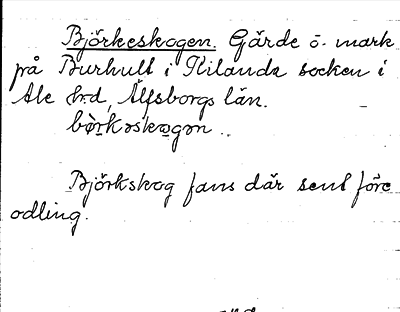 Björkeskogen. Gärde o. mark
på Burhult i Kilanda socken i
Ale hd, Älfsborgs län.
bö̀rkəskogən.
Björkskog fans där senl före
odling.